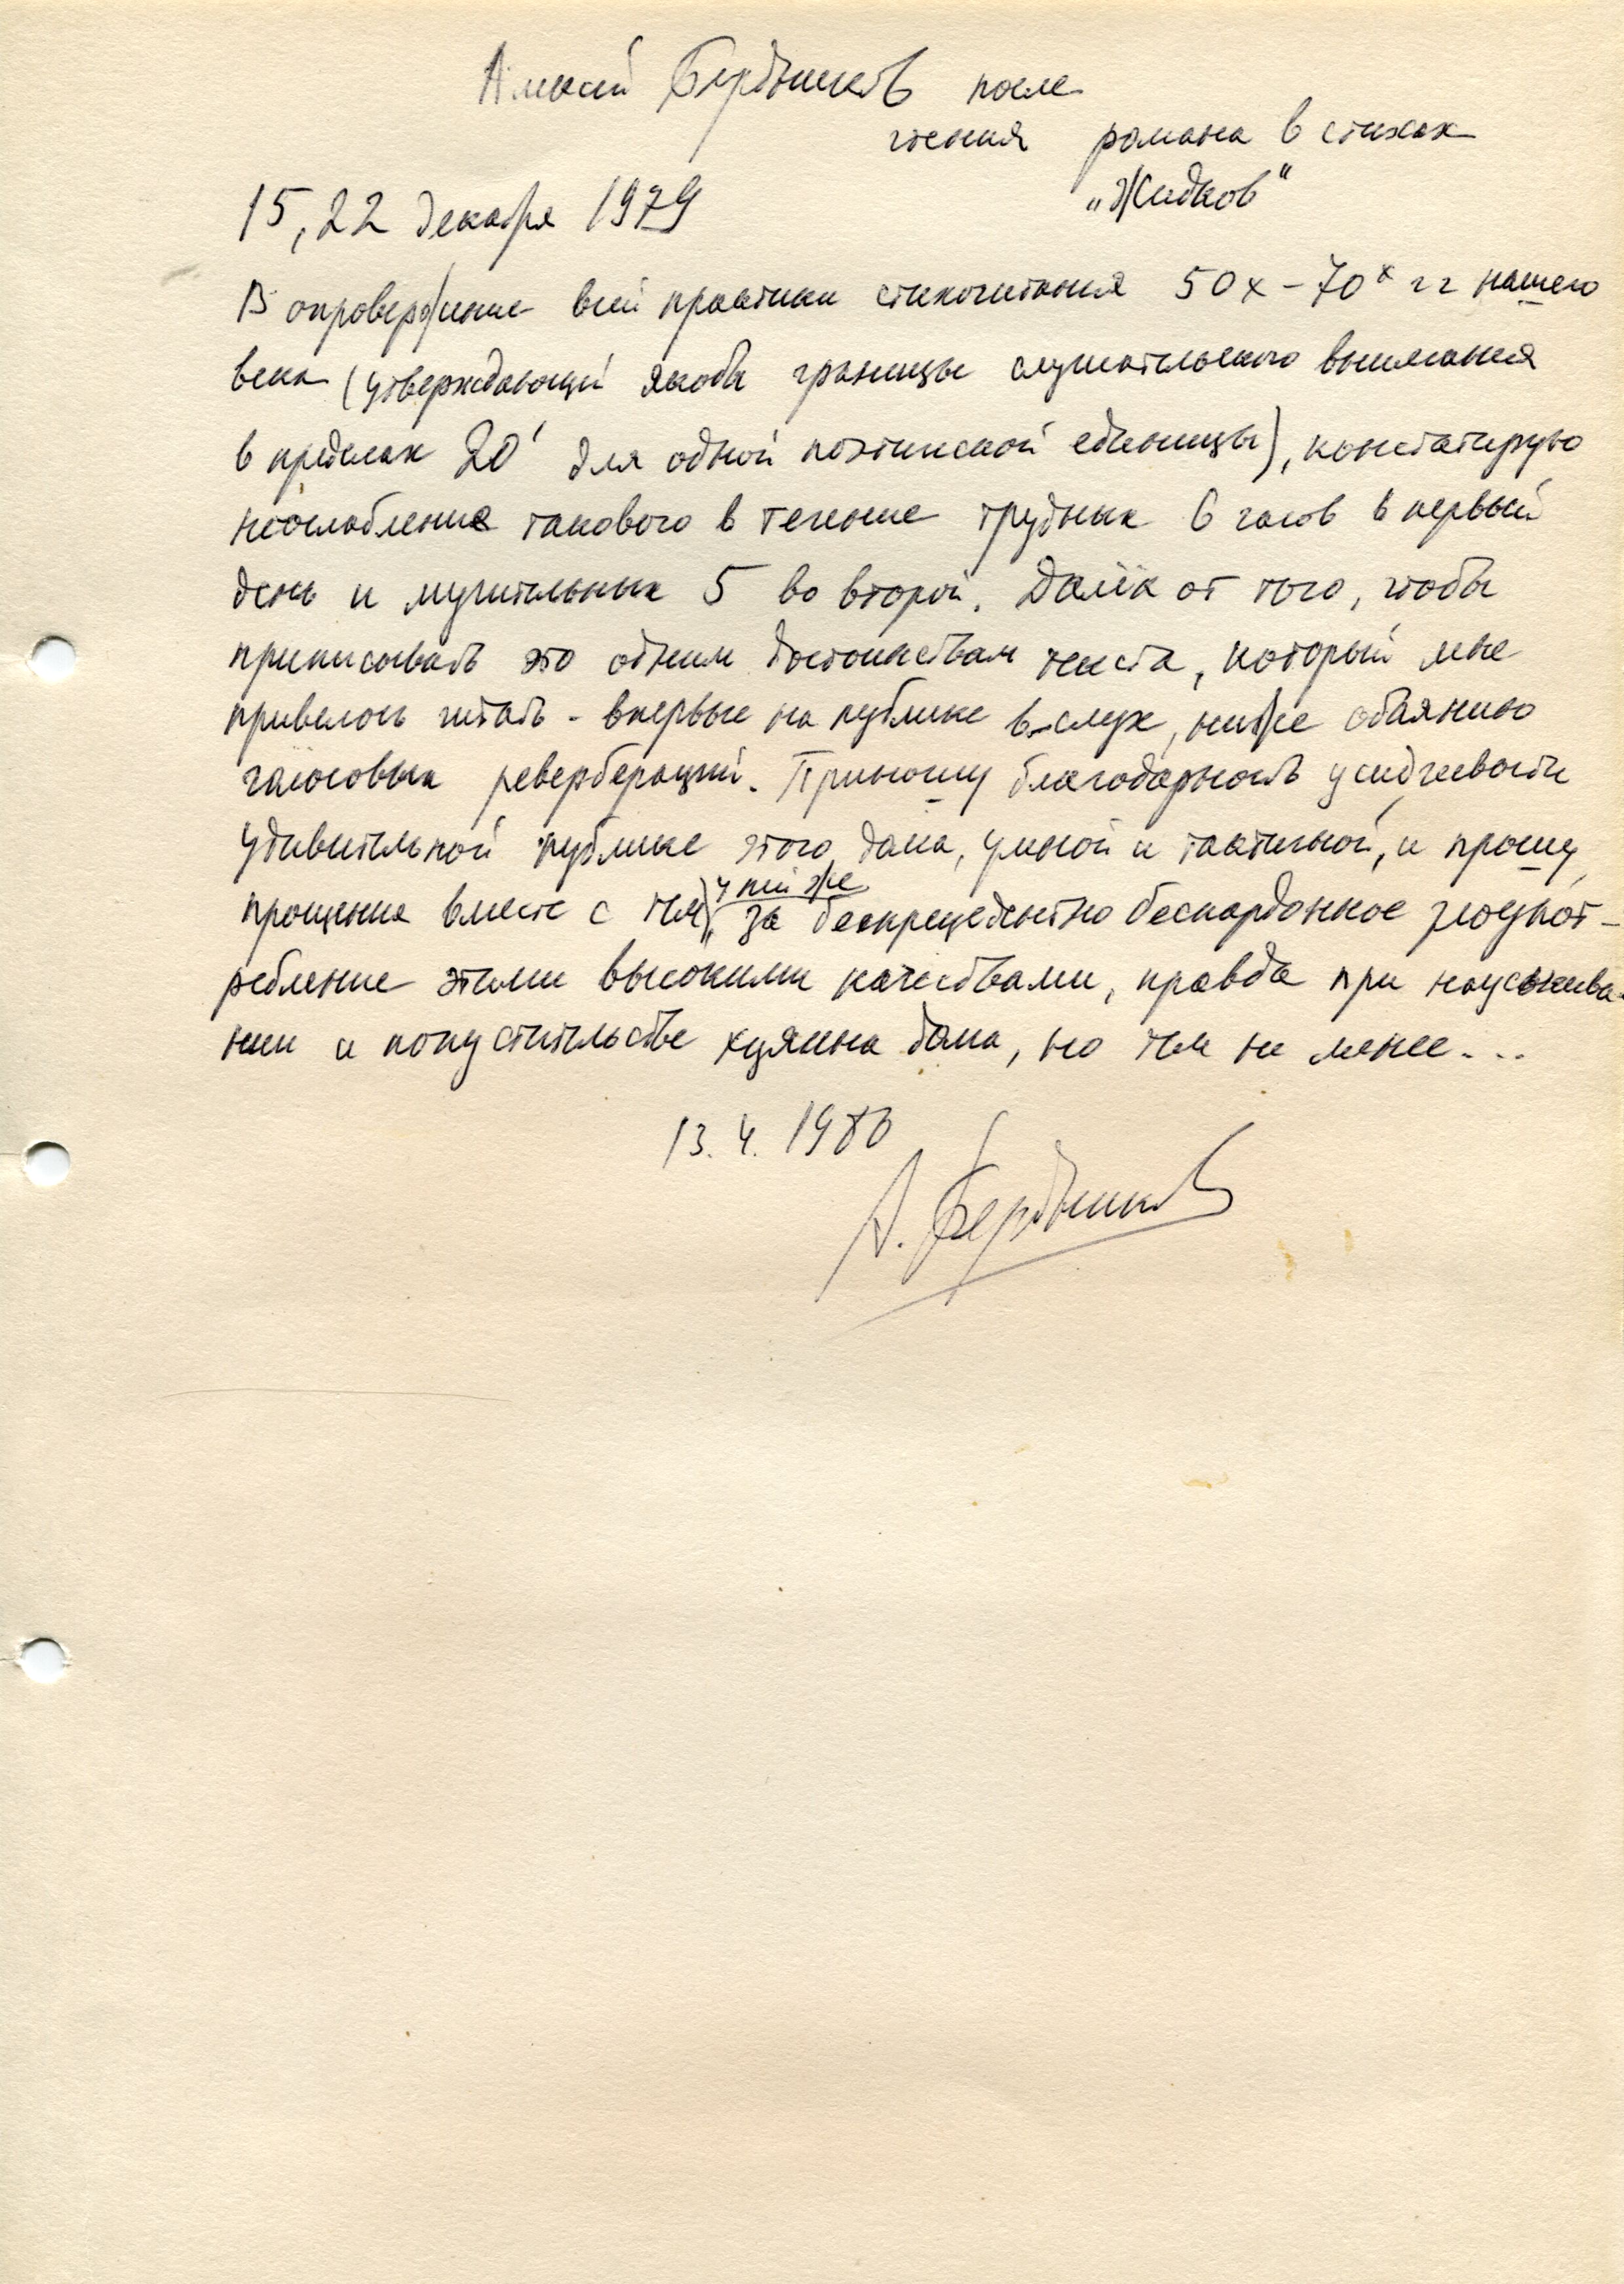 Алексей Бердников после
чтения романа в стихах
„Жидков“
15, 22 декабря 1979
В опровержение всей практики стихочитания 50х – 70х гг нашего
века (утверждающей якобы границы слушательского внимания
в пределах 20' для одной поэтической единицы), констатирую
неослабление такового в течение трудных 6 часов в первый
день и мучительных 5 во второй. Далёк от того, чтобы
приписывать это одним достоинствам текста, который мне
привелось читать - впервые на публике в-слух, ниже обаянию
голосовых ревербераций. Приношу благодарность усидчивости
удивительной публике этого дома, умной и тактичной, и прошу
прощения вместе с тем у неё же за беспрецедентно беспардонное злоупот-
ребление этими высокими качествами, правда при науськива-
нии и попустительстве хозяина дома, но тем не менее...
13. 4. 1980
А. Бердников